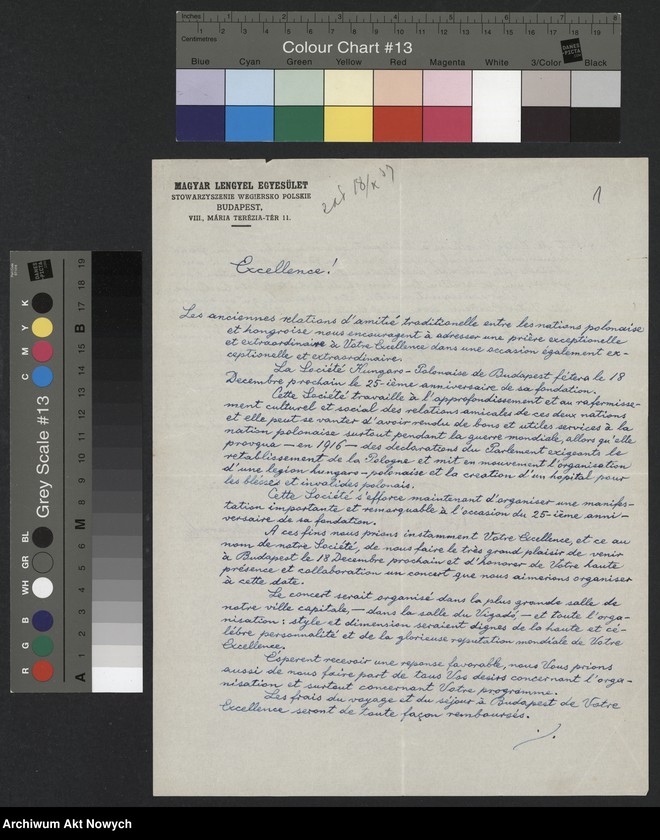 Inches 1 2 3 4 5 6 7 8
Centimetres 1 2 3 4 5 6 7 8 9 10 11 12 13 14 15 16 17 18 19
Colour Chart #13
DANES PICTA
Blue Cyan Green Yellow Red Magenta White 3/Color Black
MAGYAR LENGYEL EGYESÜLET
STOWARZYSZENIE WEGIERSKO POLSKIE
BUDAPEST,
VIII., MÁRIA TERÉZIA-TÉR 11.
18/X 37
1
Excellence!
Les anciennes relations d'amitié traditionelle entre les nations polonaise
et hongroise nous encouragent à adresser une prière exceptionelle
et extraordinaire à Votre Excellence dans une occasion également ex-
ceptionelle et extraordinaire.
La Société Hungaro-Polonaise de Budapest fêtera le 18
Decembre prochain le 25-ième anniversaire de sa fondation.
Cette Société travaille à l'approfondissement et au raffermisse-
ment culturel et social des relations amicales de ces deux nations
et elle peut se vanter d'avoir rendu de bons et utiles services à la
nation polonaise surtout pendant la guerre mondiale, allors qu'elle
provoqua — en 1916 — des declarations du Parlement exigeants le
retablissement de la Pologne et mit en mouvement l'organisation
d'une legion hungaro-polonaise et la creation d'un hôpital pour
les blessés et invalides polonais.
Cette Société s'efforce maintenant d'organiser une manifes-
tation importante et remarquable à l'occasion du 25-ième anni-
versaire de sa fondation.
A ces fins nous prions instamment Votre Excellence, et ce au
nom de notre Société, de nous faire le très grand plaisir de venir
à Budapest le 18 Decembre prochain et d'honorer de Votre haute
présence et collaboration un concert que nous aimerions organiser
à cette date.
Le concert serait organisé dans la plus grande salle de
notre ville capitale, — dans la salle du Vigadó, — et toute l'orga-
nisation: style et dimension seraient dignes de la haute et cé-
lèbre personnalité et de la glorieuse reputation mondiale de Votre
Excellence.
Esperent recevoir une reponse favorable, nous Vous prions
aussi de nous faire part de tous Vos desirs concernant l'orga-
nisation et surtout concernant Votre programme.
Les frais du voyage et du séjour à Budapest de Votre
Excellence seront de toute façon remboursés.
./.
Grey Scale #13
DANES PICTA
C M Y K
R G B WH GR BL
A 1 2 3 4 5 6 M 8 9 10 11 12 13 14 15 B 17 18 19
Archiwum Akt Nowych